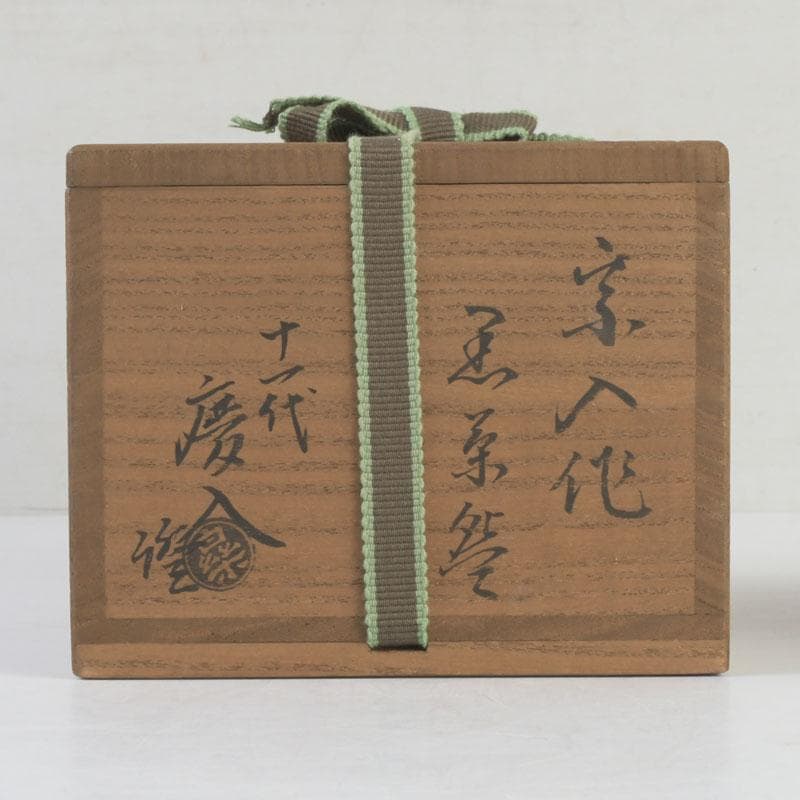 宗入作
黒茶碗
十一代
慶入
證